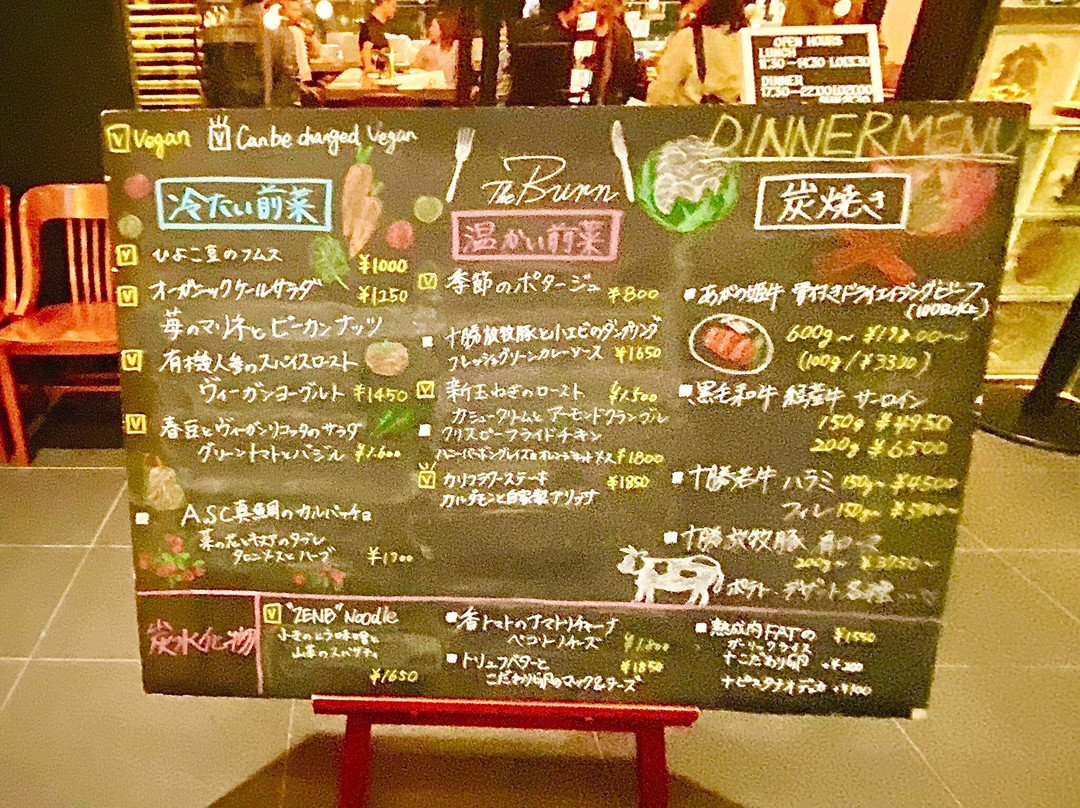 OPEN HOURS
LUNCH
11:30-14:30 L.O.13:30
DINNER
17:30-22:00 L.O.21:00
V Vegan V Can be changed Vegan
DINNER MENU
The Burn
冷たい前菜
V ひよこ豆のフムス
¥1000
V オーガニックケールサラダ ¥1250
苺のマリネとピーカンナッツ
V 有機人参のスパイスロースト
ヴィーガンヨーグルト ¥1450
V 春豆とヴィーガンリコッタのサラダ
グリーントマトとバジル ¥1,600
ASC真鯛のカルパッチョ
菜の花と
とハーブ ¥1700
温かい前菜
V 季節のポタージュ ¥800
十勝放牧豚と小エビのダンプリング
フレッシュグリーンカレーソース ¥1650
V 新玉ねぎのロースト ¥1,500
カシュークリームとアーモンドクランブル
クリスピーフライドチキン
ハニーバーボングレイズ&オレンジ ¥1800
V カリフラワーステーキ ¥1850
カルダモンと自家製
炭焼き
あか姫牛 骨付きドライエイジングビーフ
600g~
(100g/¥3300)
黒毛和牛 経産牛 サーロイン
150g ¥4950
200g ¥6500
十勝若牛 ハラミ 150g~ ¥4500
フィレ 150g~
十勝放牧豚 肩ロース
200g~
ポテト デザート
炭水化物
V "ZENB" Noodle
ふきのとう味噌と
山菜のスパゲティ
¥1650
香トマトのアマトリチャーナ
ペコリーノチーズ ¥1,800
トリュフバターと ¥1850
こだわり卵のマック&チーズ
熟成肉FATの ¥1550
ガーリックライス
+こだわり卵 +¥200